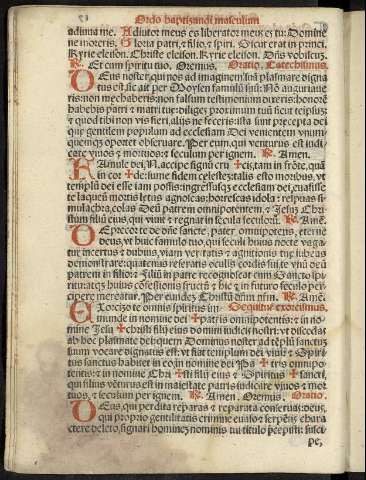 Ordo baptizandi masculum
adiuua me. Adiutor meus es liberator meus es tu: Domine
ne moreris. Gloria patri, & filio, & spiri. Sicut erat in princi.
Kyrie eleison. Christe eleison. Kyrie eleison. Dñs vobiscũ.
℞. Et cum spiritu tuo. Oremus. Oratio. Catechismus.
DEus noster, qui nos ad imaginem suã plasmare digna
tus est sic ait per Moysen famulũ suũ: Nõ
ris: non mechaberis: non falsum testimonium dixeris: honorē
habebis patri & matri tuę: diliges proximum tuũ sicut teipsum:
& quod tibi non vis fieri, alijs ne feceris: ista sunt precepta dei
que gentilem populum ad ecclesiam Dei venientem vnum
quemq; oportet obseruare. Per eum, qui venturus est iudi-
care viuos & mortuos: & seculum per ignem. ℞. Amen.
FAmule dei N. accipe signũ cru ✠ cis, tam in frõte, quã
in cor ✠ de: sume fidem celestem: talis esto moribus, vt
templũ dei esse iam possis: ingressusq; ecclesiam dei, euasisse
te laqueũ mortis lętus agnoscas: horresce idola: respuas si-
mulachra, colas deum patrem omnipotentem, & Jesum Chri
stum filiũ eius, qui viuit & regnat in secula seculorũ. ℞. Amẽ.
DEprecor te domine sancte, pater omnipotens, eterne
deus, vt huic famulo tuo, qui seculi huius nocte vaga-
tur incertus & dubius, viam veritatis & agnitionis tuę iubeas
demonstrare: quatenus reseratis oculis cordis sui, te vnũ deũ
patrem in filio: & filiũ in patre recognoscat cum sancto spi-
ritu: atq; huius cõfessionis fructũ & hic & in futuro seculo per
cipere mereatur. Per eundem Christũ dñm nrm. ℞. Amẽ.
EXorcizo te omnis spiritus im- Sequitur exorcismus.
munde in nomine dei ✠ patris omnipotentis: & in no-
mine Jesu ✠ christi filij eius domini iudicis nostri: vt discedas
ab hoc plasmate dei: quem Dominus noster ad templũ sanctum
suum vocare dignatus est: vt fiat templum dei viui: & Spiri
tus sanctus habitet in eo: in nomine dei Pa ✠ tris omnipo-
tentis: & in nomine Chri ✠ sti filij eius & Spiritus ✠ sancti,
qui filius vẽturus est in maiestate patris iudicare viuos & mor
tuos, & seculum per ignem. ℞. Amen. Oremus. Oratio.
DEus, qui perdita reparas & reparata conseruas: deus,
qui proprio genitalitatis crimine euasor serpens chara-
ctere deleto, signari homines nominis tui titulo suscí
pe,